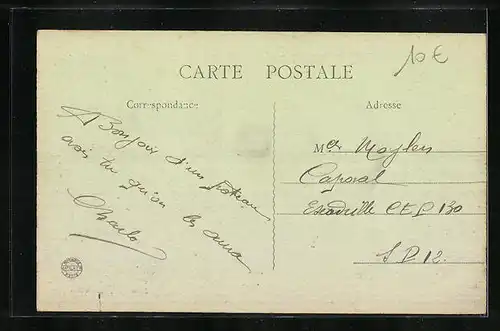 10 €
CARTE POSTALE
Correspondance
Adresse
Bonjour d'un poteau
vois tu qu'on les aura
Charlo
Mr Moylen
Caporal
Escadrille CEP 130
S P 12.